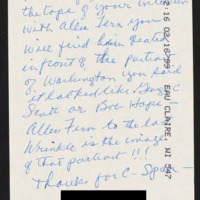 the tape of your interview
with Alen Fern you
will find him seated
in front of the portiait
of Washington you said
it looked like George C
Scott or Bob Hope
Allen Fern to the last
Wrinkle is the image
of that portiait !!!
Thanks for C-Span
02/16/99 EAU CLAIRE, WI 547